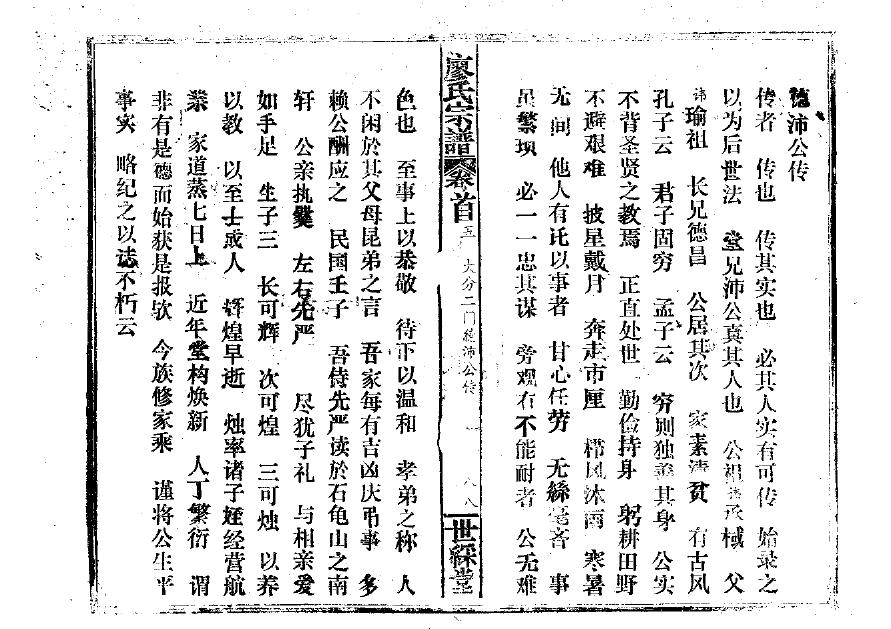 德沛公传
传者　传也　传其实也　必其人实有可传　始录之
以为后世法　堂兄沛公真其人也　公祖　械　父
讳瑜祖　长兄德昌　公居其次　家素清贫　有古风
孔子云　君子固穷　孟子云　穷则独善其身　公实
不背圣贤之教焉　正直处世　勤俭持身　躬耕田野
不避艰难　披星戴月　奔走市厘　栉风沐雨　寒暑
无间　他人有讬以事者　甘心任劳　无丝毫吝　事
虽繁琐　必一一忠其谋　旁观有不能耐者　公无难
廖氏宗谱　卷首　五　大分二门德沛公传　一　八八　世綵堂
色也　至事上以恭敬　待下以温和　孝弟之称　人
不闲於其父母昆弟之言　吾家每有吉凶庆弔事　多
赖公酬应之　民国壬子　吾侍先严读於石龟山之南
轩　公亲执爨　左右先严　尽犹子礼　与相亲爱
如手足　生子三　长可辉　次可煌　三可烛　以养
以教　以至士成人　辉煌早逝　烛率诸子姪经营航
业　家道蒸七日上　近年堂构焕新　人丁繁衍　谓
非有是德而始获是报欤　今族修家乘　谨将公生平
事实　略纪之以誌不朽云